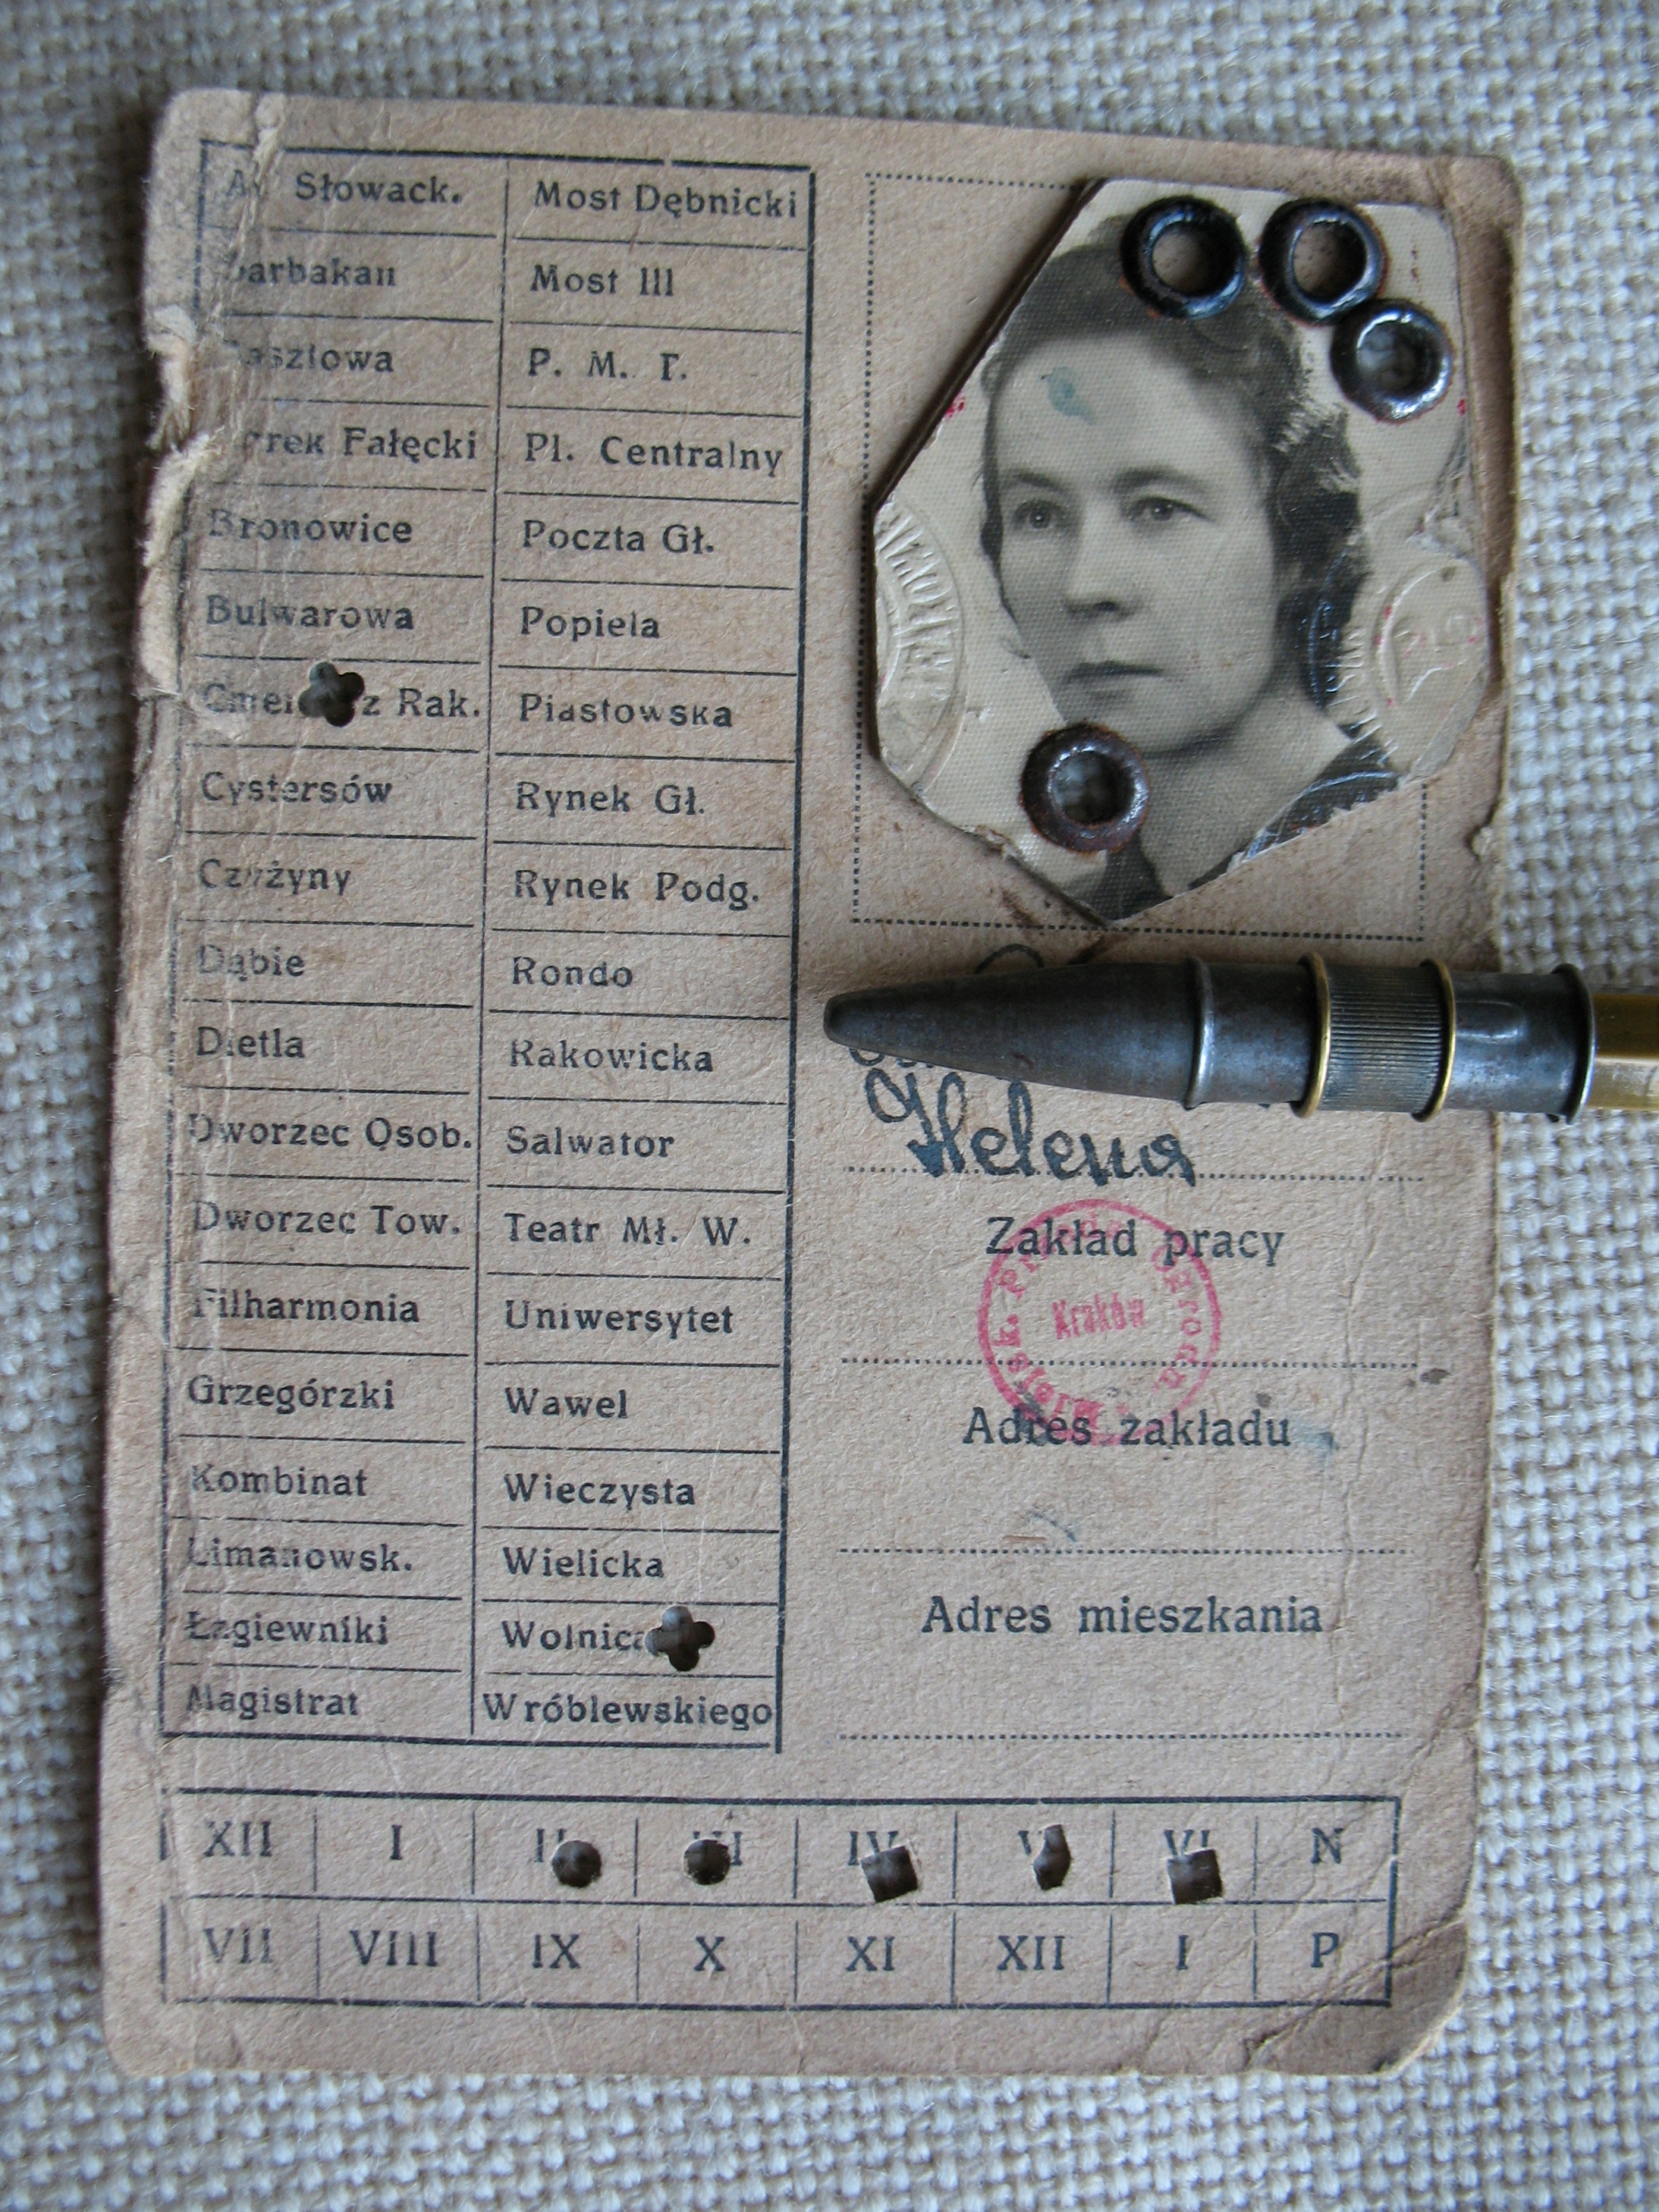 Al. Słowack. Most Dębnicki
Barbakan Most III
Basztowa P. M. T.
Borek Fałęcki Pl. Centralny
Bronowice Poczta Gł.
Bulwarowa Popiela
Cmentarz Rak. Piastowska
Cystersów Rynek Gł.
Czyżyny Rynek Podg.
Dąbie Rondo
Dietla Rakowicka
Dworzec Osob. Salwator
Dworzec Tow. Teatr Mł. W.
Filharmonia Uniwersytet
Grzegórzki Wawel
Kombinat Wieczysta
Limanowsk. Wielicka
Łagiewniki Wolnica
Magistrat Wróblewskiego
Helena
Zakład pracy
Kraków
Adres zakładu
Adres mieszkania
XII I II III IV V VI N
VII VIII IX X XI XII I P